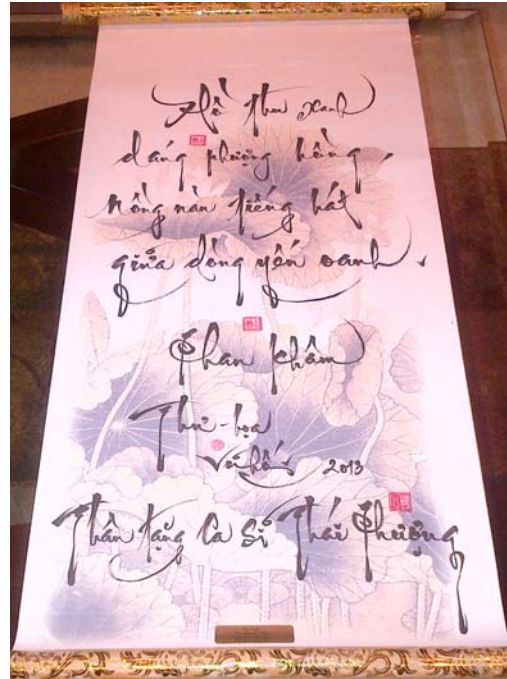 Hồ thu xanh
dáng phượng hồng,
nồng nàn tiếng hát
giữa dòng yến oanh.
Phan Khâm
Thư-họa
Vũ Hối 2013
Thân tặng Ca Sĩ Thái Phượng